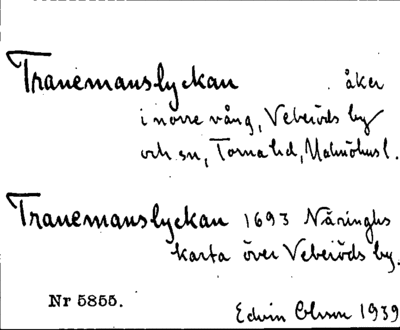 Tranemanslyckan åker
i norre vång, Veberöds by
och sn, Torna hd, Malmöhus l.
Tranemanslyckan 1693 Näringhs
karta över Veberöds by.
Nr 5855.
Edvin Ohlson 1939